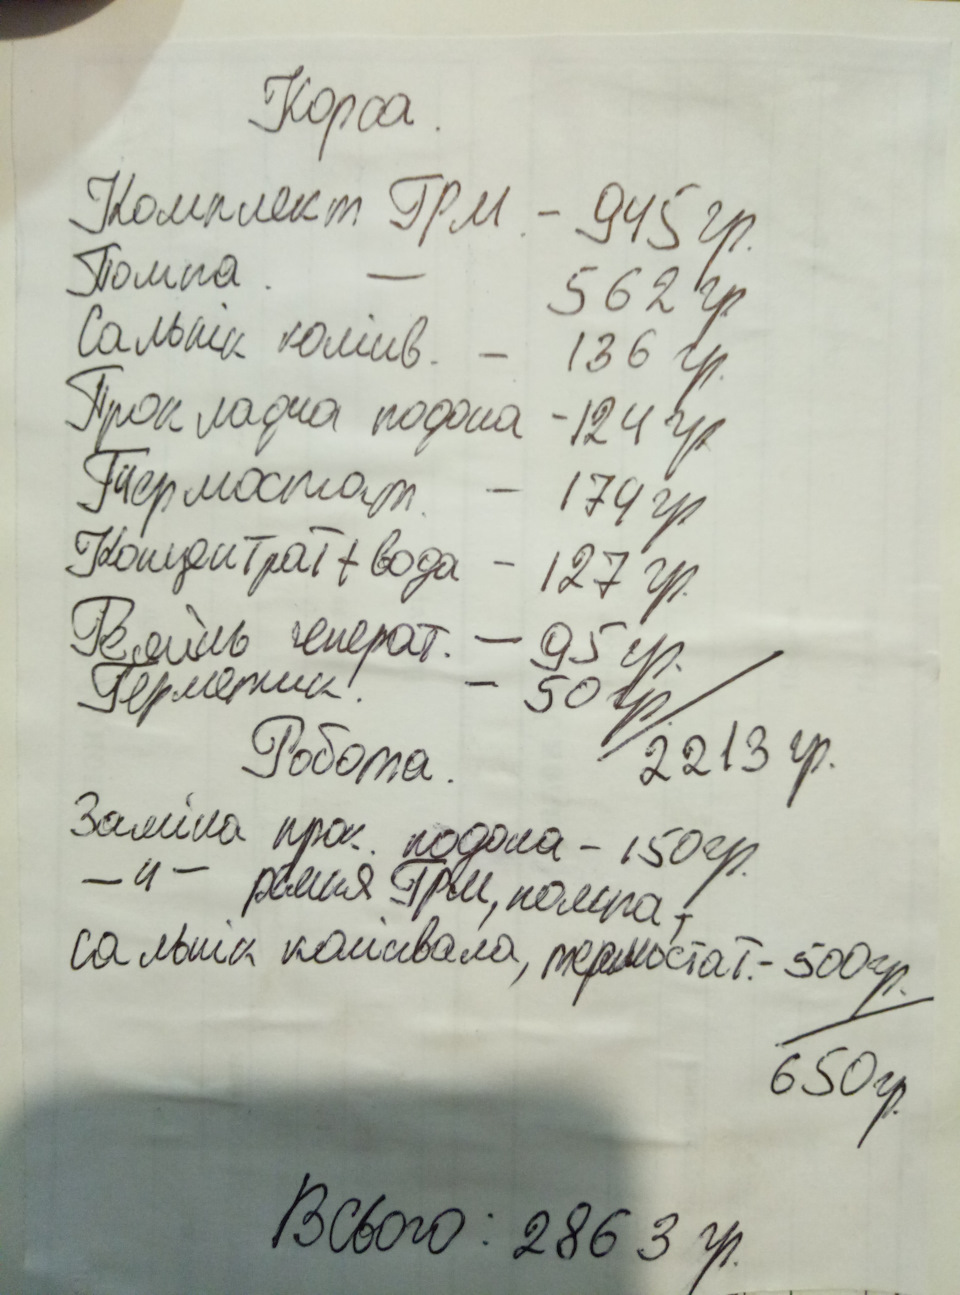 Корса.
Комплект ГРМ. - 945 гр.
Помпа. — 562 гр
Сальнік колінв. - 136 гр.
Прокладка подона - 124 гр
Термостат. - 174 гр
Концентрат + вода - 127 гр.
Ремінь генерат. - 95 гр.
Герметик. - 50 гр
2213 гр.
Робота.
Заміна прок. подона - 150 гр.
—"— ремня ГРМ, помпа,+
сальнік колінвала, термостат. - 500 гр.
650 гр.
Всього: 2863 гр.